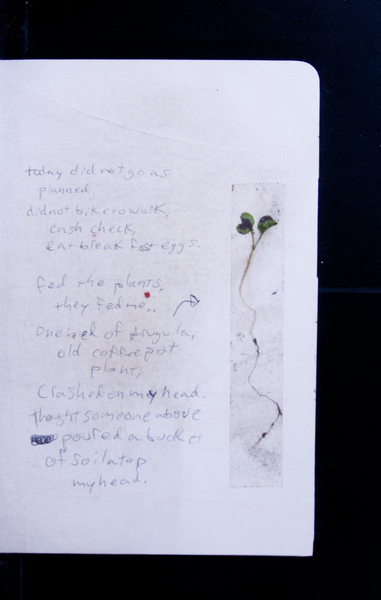 today did not go as
planned.
did not bike to work,
cash check,
eat breakfast eggs.
fed the plants,
they fed me..
One bed of arugula,
old coffee pot
plant,
Crashed on my head.
thoght someone above
poured a bucket
of soil atop
my head.